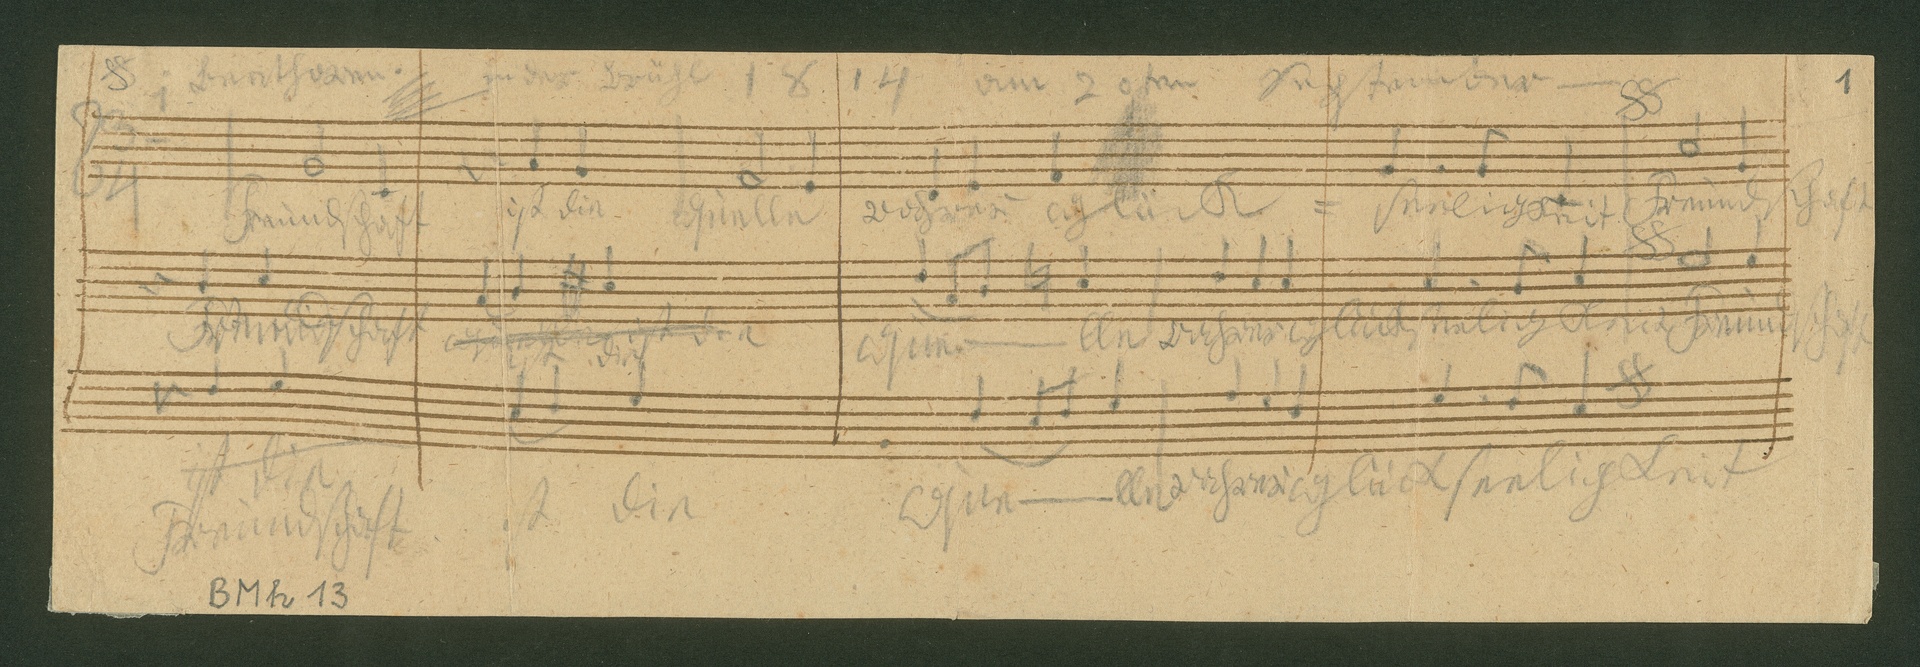 Beethoven. in der Brühl 1814 am 20ten September —
1
3
4
Freundschaft ist die Quelle wahrer glück = seeligkeit Freundschaft
Freundschaft ist die
ist die Que— lle wahrer glückseeligkeit Freundschaft
ist die
Freundschaft ist die Que— lle wahrer glückseeligkeit
BMh 13